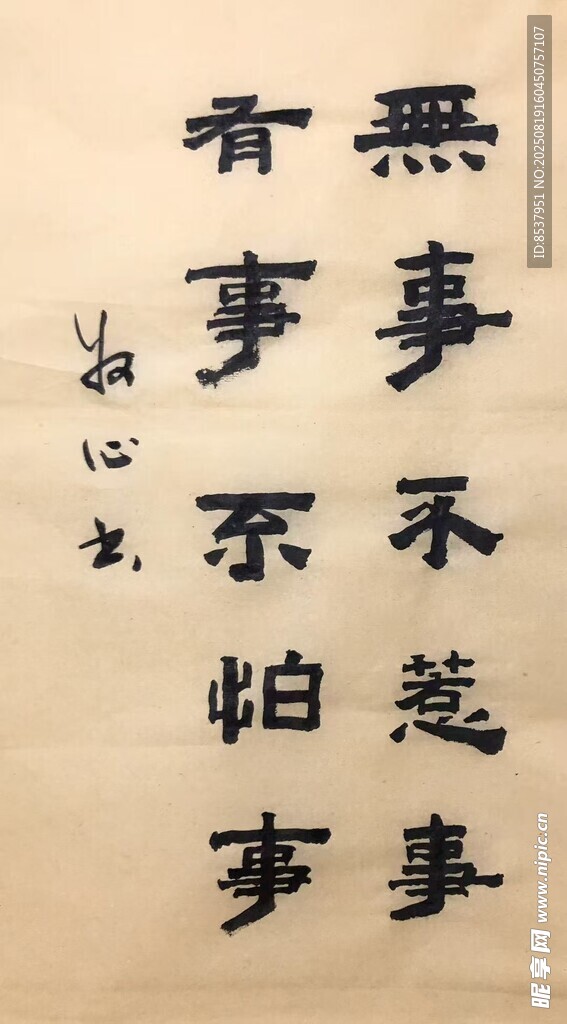 無事不惹事
有事不怕事
牧心书
ID:8537951 NO:20250819160450757107
昵享网 www.nipic.cn